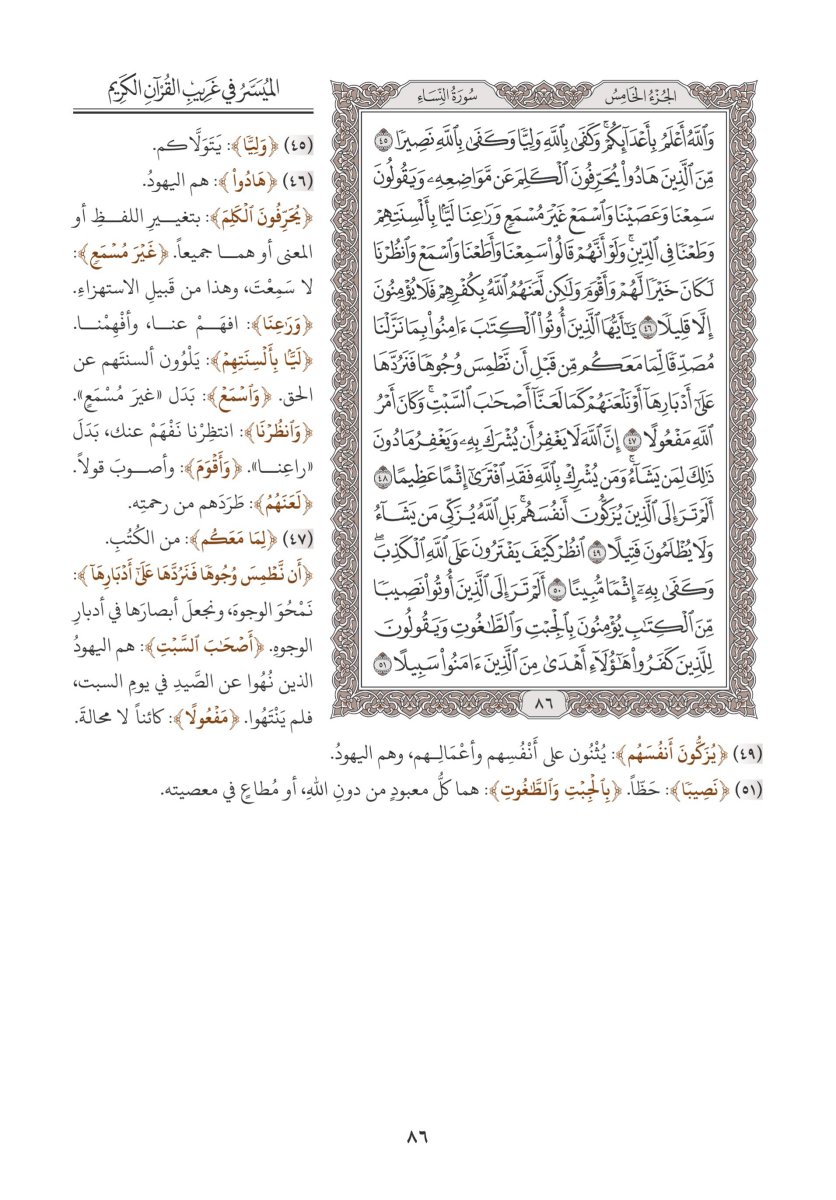 الميسر في غريب القرآن الكريم
الجزء الخامس
سورة النساء
وَٱللَّهُ أَعۡلَمُ بِأَعۡدَآئِكُمۡۚ وَكَفَىٰ بِٱللَّهِ وَلِيّٗا وَكَفَىٰ بِٱللَّهِ نَصِيرٗا ٤٥
مِّنَ ٱلَّذِينَ هَادُواْ يُحَرِّفُونَ ٱلۡكَلِمَ عَن مَّوَاضِعِهِۦ وَيَقُولُونَ
سَمِعۡنَا وَعَصَيۡنَا وَٱسۡمَعۡ غَيۡرَ مُسۡمَعٖ وَرَٰعِنَا لَيَّۢا بِأَلۡسِنَتِهِمۡ
وَطَعۡنٗا فِي ٱلدِّينِۚ وَلَوۡ أَنَّهُمۡ قَالُواْ سَمِعۡنَا وَأَطَعۡنَا وَٱسۡمَعۡ وَٱنظُرۡنَا
لَكَانَ خَيۡرٗا لَّهُمۡ وَأَقۡوَمَ وَلَٰكِن لَّعَنَهُمُ ٱللَّهُ بِكُفۡرِهِمۡ فَلَا يُؤۡمِنُونَ
إِلَّا قَلِيلٗا ٤٦ يَٰٓأَيُّهَا ٱلَّذِينَ أُوتُواْ ٱلۡكِتَٰبَ ءَامِنُواْ بِمَا نَزَّلۡنَا
مُصَدِّقٗا لِّمَا مَعَكُم مِّن قَبۡلِ أَن نَّطۡمِسَ وُجُوهٗا فَنَرُدَّهَا
عَلَىٰٓ أَدۡبَارِهَآ أَوۡ نَلۡعَنَهُمۡ كَمَا لَعَنَّآ أَصۡحَٰبَ ٱلسَّبۡتِۚ وَكَانَ أَمۡرُ
ٱللَّهِ مَفۡعُولًا ٤٧ إِنَّ ٱللَّهَ لَا يَغۡفِرُ أَن يُشۡرَكَ بِهِۦ وَيَغۡفِرُ مَا دُونَ
ذَٰلِكَ لِمَن يَشَآءُۚ وَمَن يُشۡرِكۡ بِٱللَّهِ فَقَدِ ٱفۡتَرَىٰٓ إِثۡمًا عَظِيمًا ٤٨
أَلَمۡ تَرَ إِلَى ٱلَّذِينَ يُزَكُّونَ أَنفُسَهُمۚ بَلِ ٱللَّهُ يُزَكِّي مَن يَشَآءُ
وَلَا يُظۡلَمُونَ فَتِيلًا ٤٩ ٱنظُرۡ كَيۡفَ يَفۡتَرُونَ عَلَى ٱللَّهِ ٱلۡكَذِبَۖ
وَكَفَىٰ بِهِۦٓ إِثۡمٗا مُّبِينًا ٥٠ أَلَمۡ تَرَ إِلَى ٱلَّذِينَ أُوتُواْ نَصِيبٗا
مِّنَ ٱلۡكِتَٰبِ يُؤۡمِنُونَ بِٱلۡجِبۡتِ وَٱلطَّٰغُوتِ وَيَقُولُونَ
لِلَّذِينَ كَفَرُواْ هَٰٓؤُلَآءِ أَهۡدَىٰ مِنَ ٱلَّذِينَ ءَامَنُواْ سَبِيلًا ٥١
٨٦
(٤٥) ﴿وَلِيّٗا﴾: يَتَوَلَّاكم.
(٤٦) ﴿هَادُواْ﴾: هم اليهودُ.
﴿يُحَرِّفُونَ ٱلۡكَلِمَ﴾: بتغييرِ اللفظِ أو
المعنى أو هما جميعاً. ﴿غَيۡرَ مُسۡمَعٖ﴾:
لا سَمِعْتَ، وهذا من قَبيلِ الاستهزاءِ.
﴿وَرَٰعِنَا﴾: افهَمْ عنا، وأفْهِمْنا.
﴿لَيَّۢا بِأَلۡسِنَتِهِمۡ﴾: يَلْوُون ألسنتَهم عن
الحق. ﴿وَٱسۡمَعۡ﴾: بَدَل «غيرَ مُسْمَعٍ».
﴿وَٱنظُرۡنَا﴾: انتظِرْنا نَفْهَمْ عنك، بَدَلَ
«راعِنا». ﴿وَأَقۡوَمَ﴾: وأصوبَ قولاً.
﴿لَعَنَهُمُ﴾: طَرَدَهم من رحمتِه.
(٤٧) ﴿لِمَا مَعَكُم﴾: من الكُتُبِ.
﴿أَن نَّطۡمِسَ وُجُوهٗا فَنَرُدَّهَا عَلَىٰٓ أَدۡبَارِهَآ﴾:
نَمْحُوَ الوجوهَ، ونجعلَ أبصارَها في أدبارِ
الوجوهِ. ﴿أَصۡحَٰبَ ٱلسَّبۡتِ﴾: هم اليهودُ
الذين نُهُوا عن الصَّيدِ في يومِ السبت،
فلم يَنْتَهُوا. ﴿مَفۡعُولًا﴾: كائناً لا محالةَ.
(٤٩) ﴿يُزَكُّونَ أَنفُسَهُم﴾: يُثْنُون على أَنْفُسِهم وأعْمَالِهم، وهم اليهودُ.
(٥١) ﴿نَصِيبٗا﴾: حَظّاً. ﴿بِٱلۡجِبۡتِ وَٱلطَّٰغُوتِ﴾: هما كلُّ معبودٍ من دونِ اللهِ، أو مُطاعٍ في معصيته.
٨٦